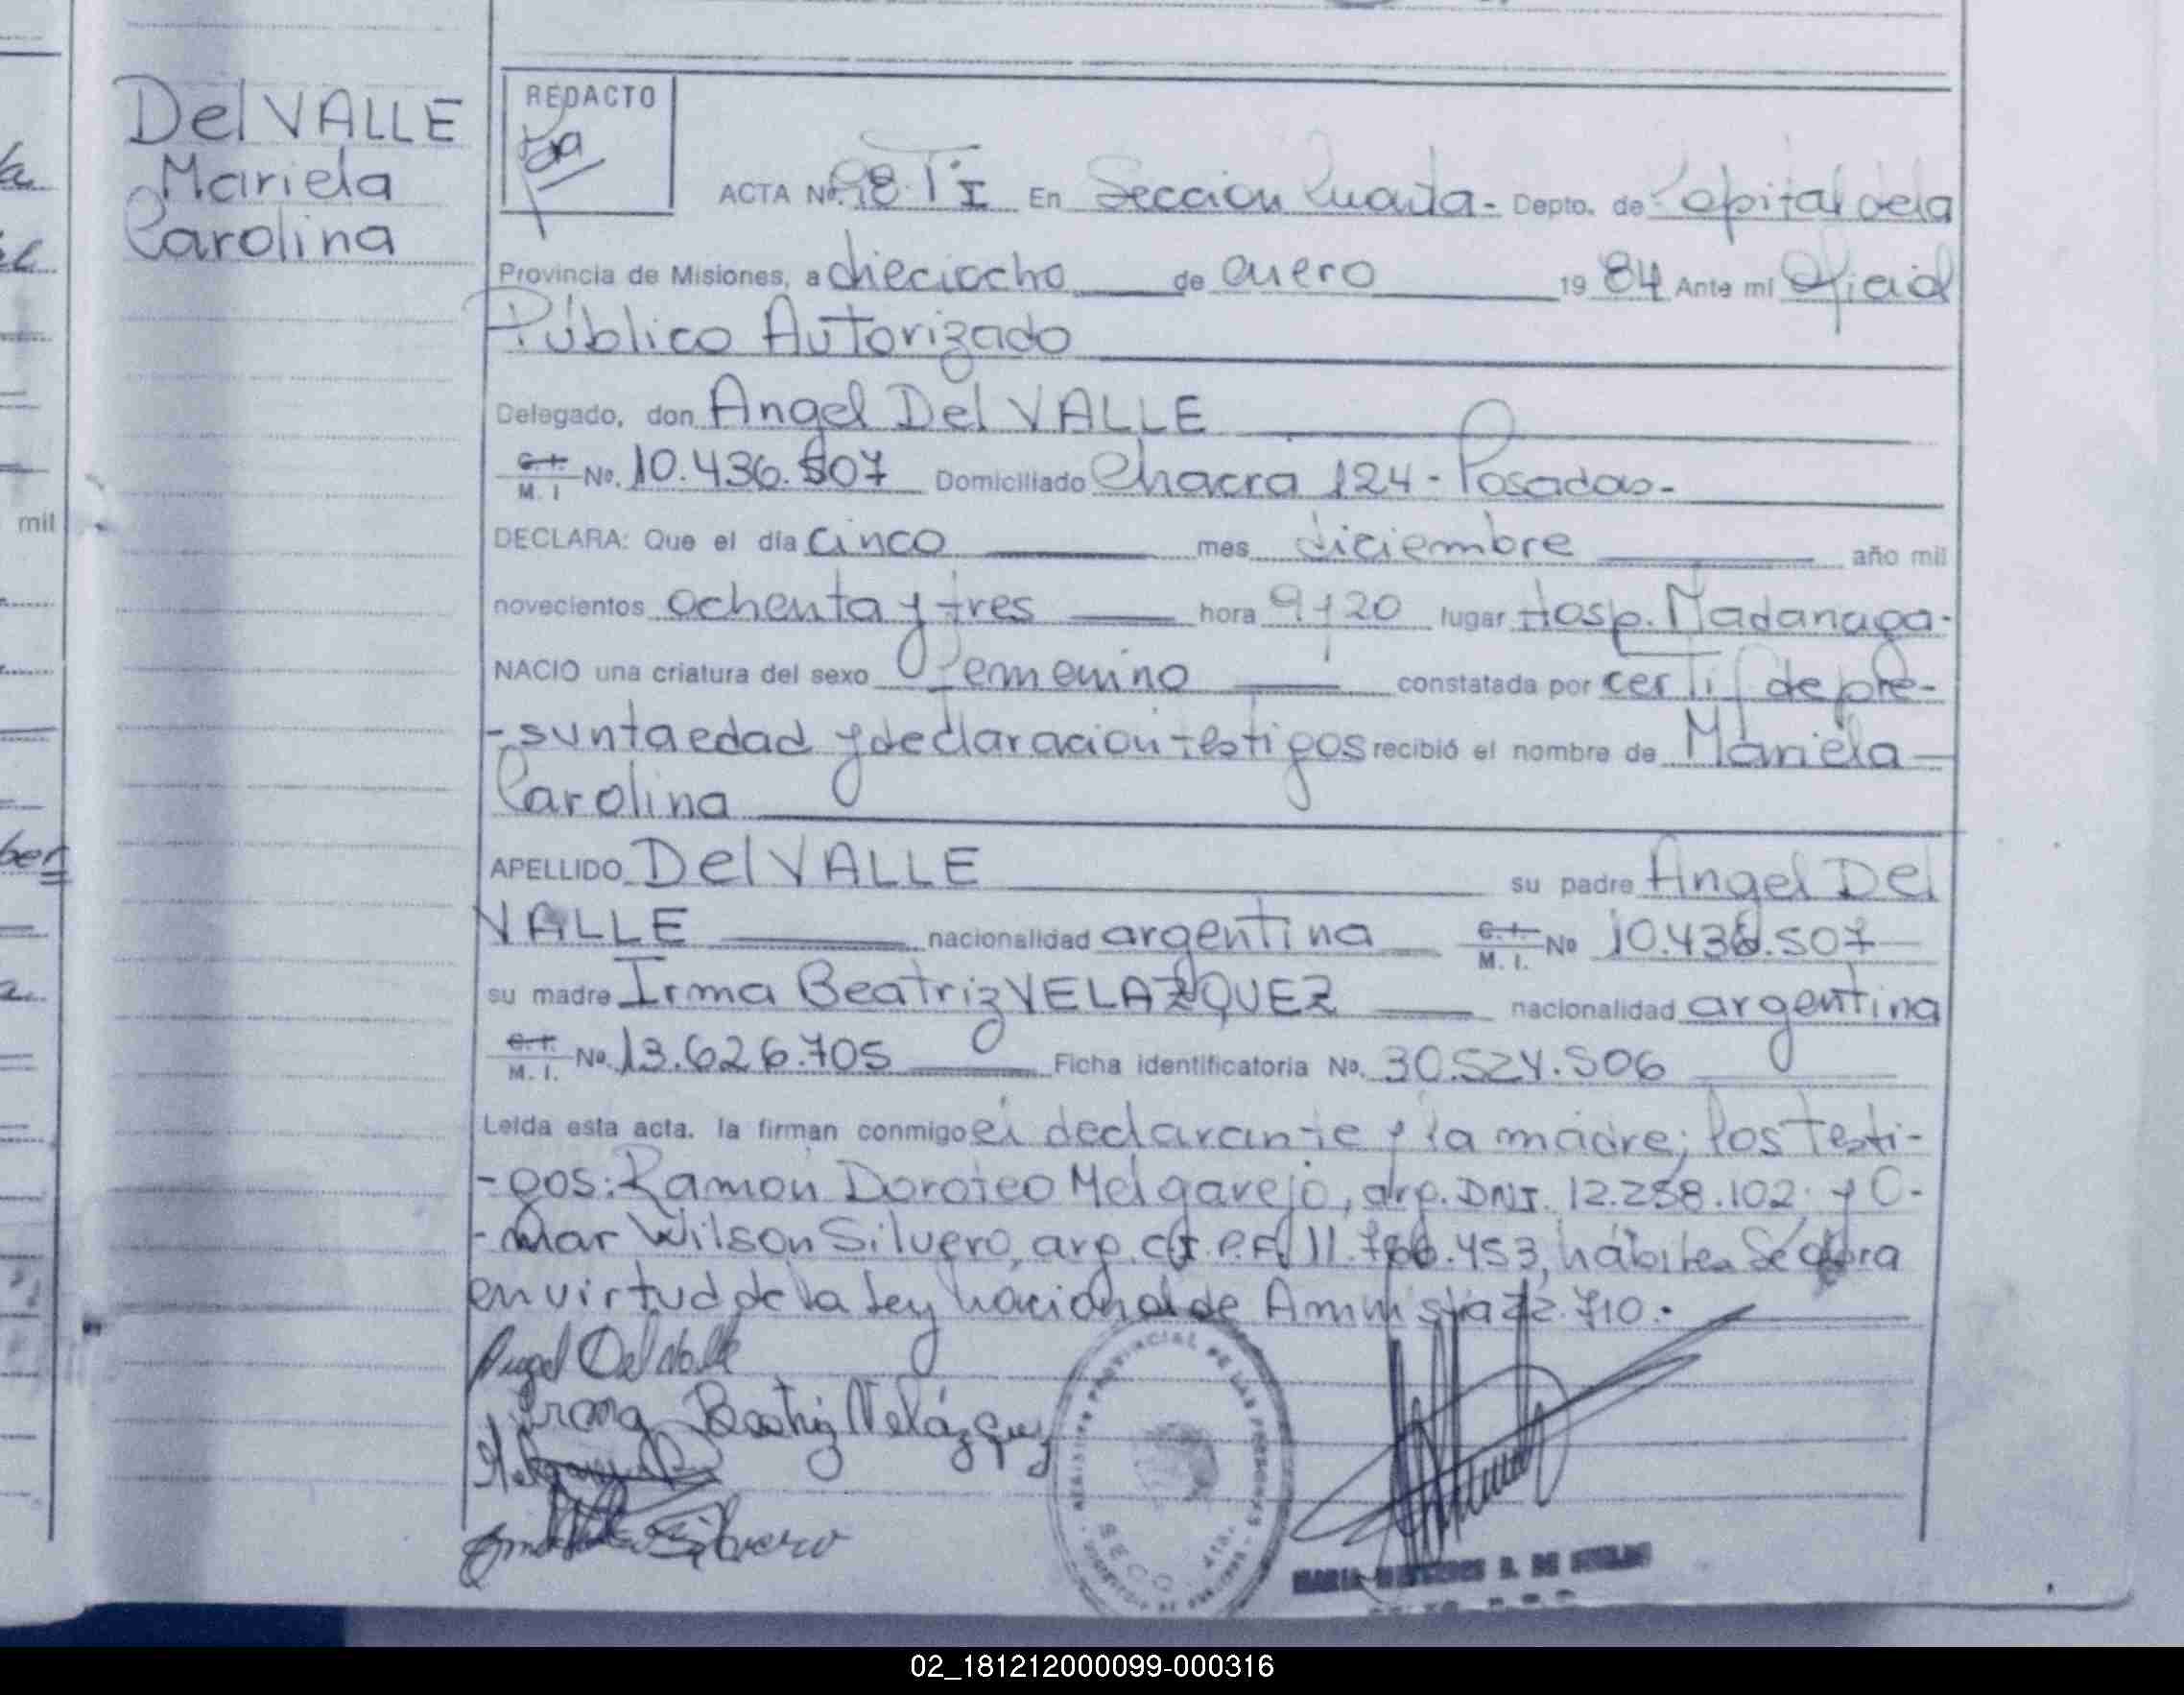 Del VALLE
Mariela
Carolina
REDACTO
ACTA Nº 98 TI En Seccion Cuarta- Depto. de Capital de la
Provincia de Misiones, a dieciocho de enero 1984 Ante mi Oficial
Público Autorizado
Delegado, don Angel Del VALLE
C.I. M.I No. 10.436.507 Domiciliado Chacra 124 - Posadas-
mil
DECLARA: Que el día cinco mes diciembre año mil
novecientos ochenta y tres hora 9 y 20 lugar Hosp. Madariaga.
NACIO una criatura del sexo Femenino constatada por certif de pre-
-sunta edad y declaracion testigos recibió el nombre de Mariela
Carolina
APELLIDO Del VALLE su padre Angel Del
VALLE nacionalidad argentina C.I. M.I. No 10.436.507
su madre Irma Beatriz VELAZQUEZ nacionalidad argentina
C.I. M.I. No. 13.626.705 Ficha identificatoria No. 30.524.506
Leida esta acta. la firman conmigo el declarante y la madre; los testi-
-gos: Ramon Doroteo Melgarejo, arg. DNI. 12.258.102. y O-
-mar Wilson Silvero, arg. C.I. P.F. 11.453, hábiles Se labra
en virtud de la Ley nacional de Amnistia 22.710.-
Angel Del Valle
Irma Beatriz Velázquez
Melgarejo
Omar Silvero
REGISTRO PROVINCIAL DE LAS PERSONAS
SECC. 4ta.
MARIA DE
02_181212000099-000316